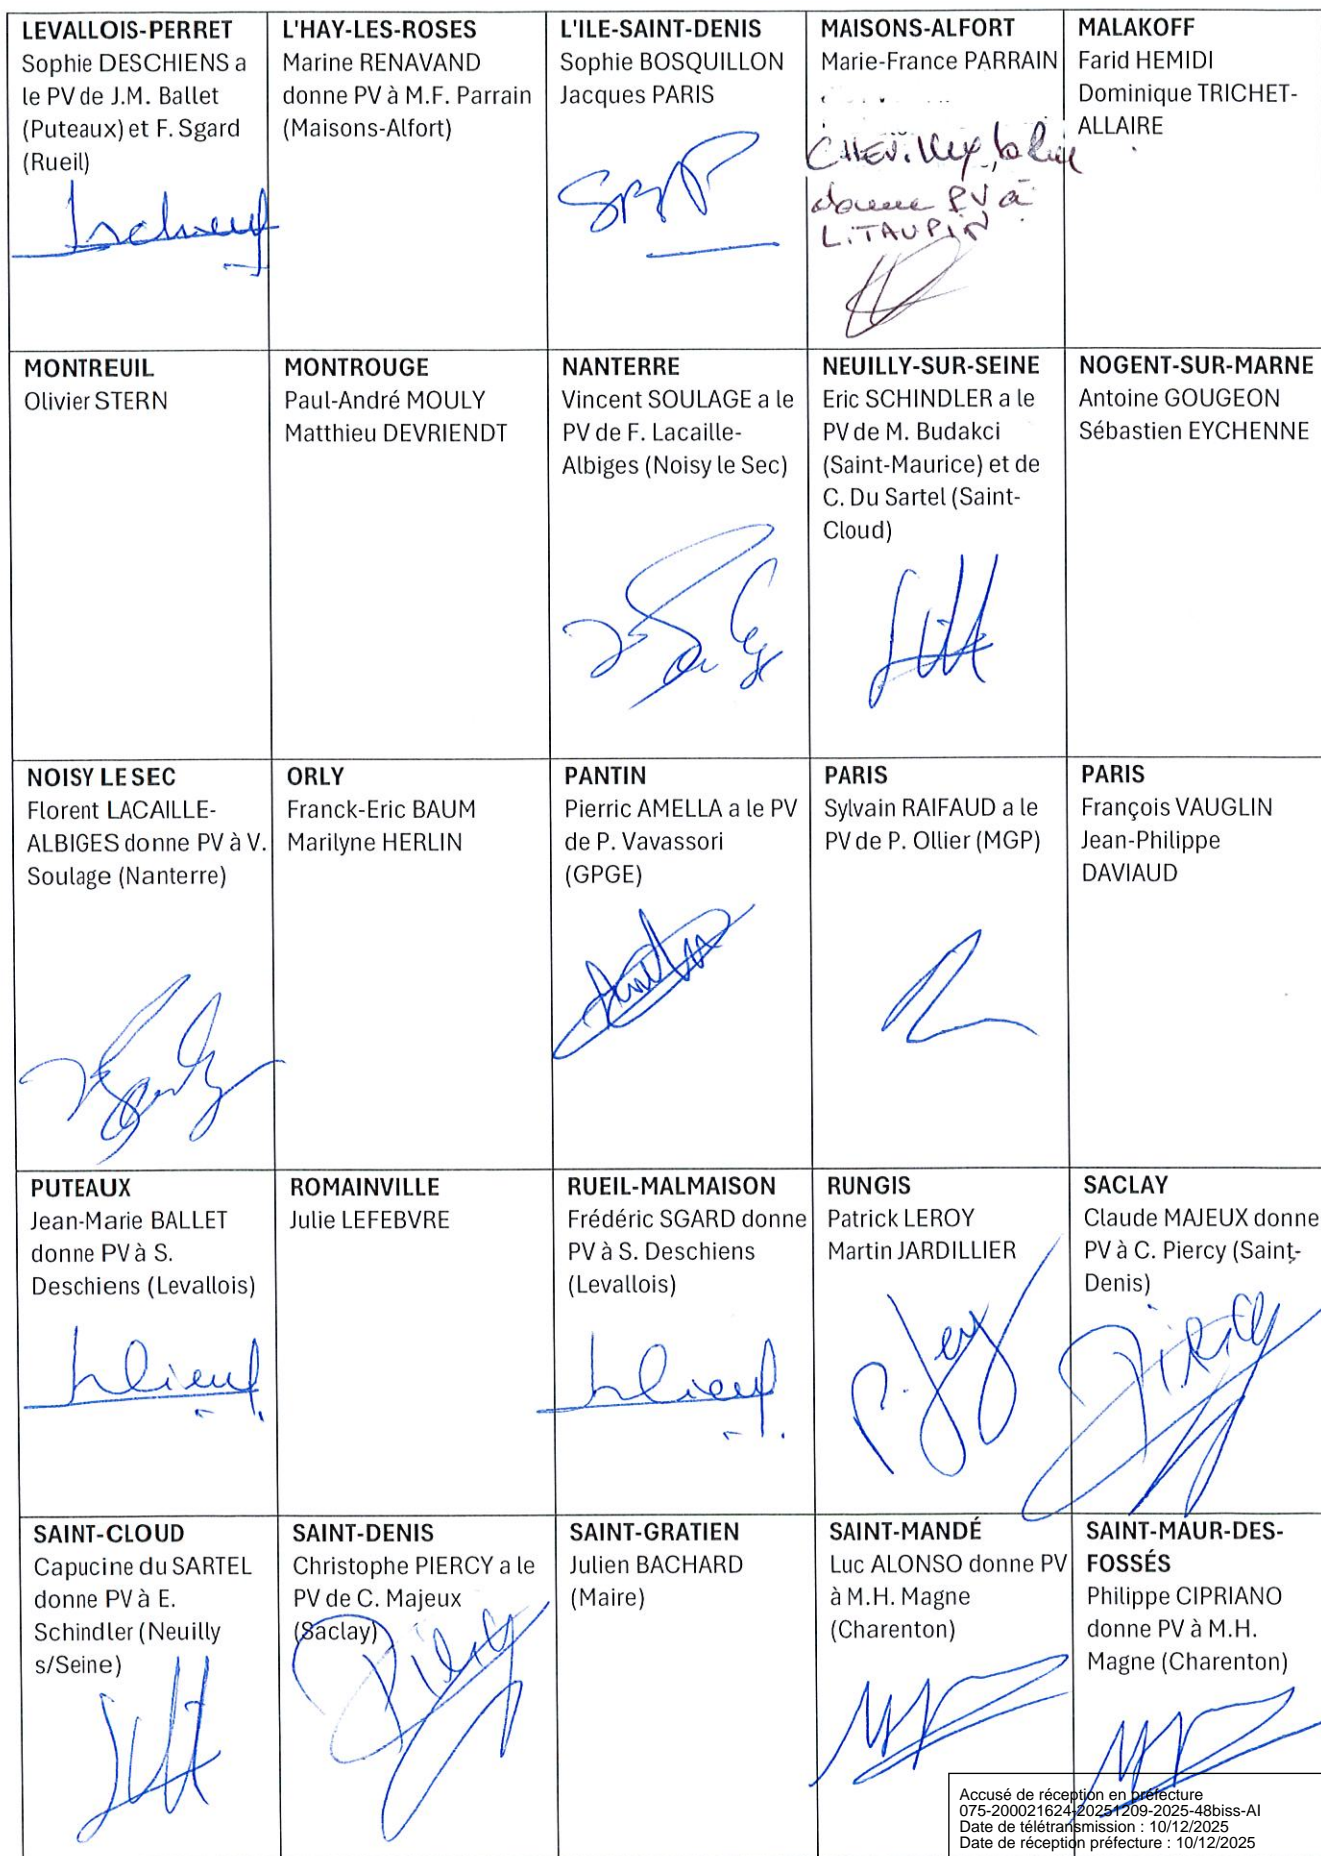 LEVALLOIS-PERRET
Sophie DESCHIENS a
le PV de J.M. Ballet
(Puteaux) et F. Sgard
(Rueil)
L'HAY-LES-ROSES
Marine RENAVAND
donne PV à M.F. Parrain
(Maisons-Alfort)
L'ILE-SAINT-DENIS
Sophie BOSQUILLON
Jacques PARIS
MAISONS-ALFORT
Marie-France PARRAIN
donne PV à
L. TAUPIN
MALAKOFF
Farid HEMIDI
Dominique TRICHET-
ALLAIRE
MONTREUIL
Olivier STERN
MONTROUGE
Paul-André MOULY
Matthieu DEVRIENDT
NANTERRE
Vincent SOULAGE a le
PV de F. Lacaille-
Albiges (Noisy le Sec)
NEUILLY-SUR-SEINE
Eric SCHINDLER a le
PV de M. Budakci
(Saint-Maurice) et de
C. Du Sartel (Saint-
Cloud)
NOGENT-SUR-MARNE
Antoine GOUGEON
Sébastien EYCHENNE
NOISY LE SEC
Florent LACAILLE-
ALBIGES donne PV à V.
Soulage (Nanterre)
ORLY
Franck-Eric BAUM
Marilyne HERLIN
PANTIN
Pierric AMELLA a le PV
de P. Vavassori
(GPGE)
PARIS
Sylvain RAIFAUD a le
PV de P. Ollier (MGP)
PARIS
François VAUGLIN
Jean-Philippe
DAVIAUD
PUTEAUX
Jean-Marie BALLET
donne PV à S.
Deschiens (Levallois)
ROMAINVILLE
Julie LEFEBVRE
RUEIL-MALMAISON
Frédéric SGARD donne
PV à S. Deschiens
(Levallois)
RUNGIS
Patrick LEROY
Martin JARDILLIER
SACLAY
Claude MAJEUX donne
PV à C. Piercy (Saint-
Denis)
SAINT-CLOUD
Capucine du SARTEL
donne PV à E.
Schindler (Neuilly
s/Seine)
SAINT-DENIS
Christophe PIERCY a le
PV de C. Majeux
(Saclay)
SAINT-GRATIEN
Julien BACHARD
(Maire)
SAINT-MANDÉ
Luc ALONSO donne PV
à M.H. Magne
(Charenton)
SAINT-MAUR-DES-
FOSSÉS
Philippe CIPRIANO
donne PV à M.H.
Magne (Charenton)
Accusé de réception en préfecture
075-200021624-20251209-2025-48biss-AI
Date de télétransmission : 10/12/2025
Date de réception préfecture : 10/12/2025